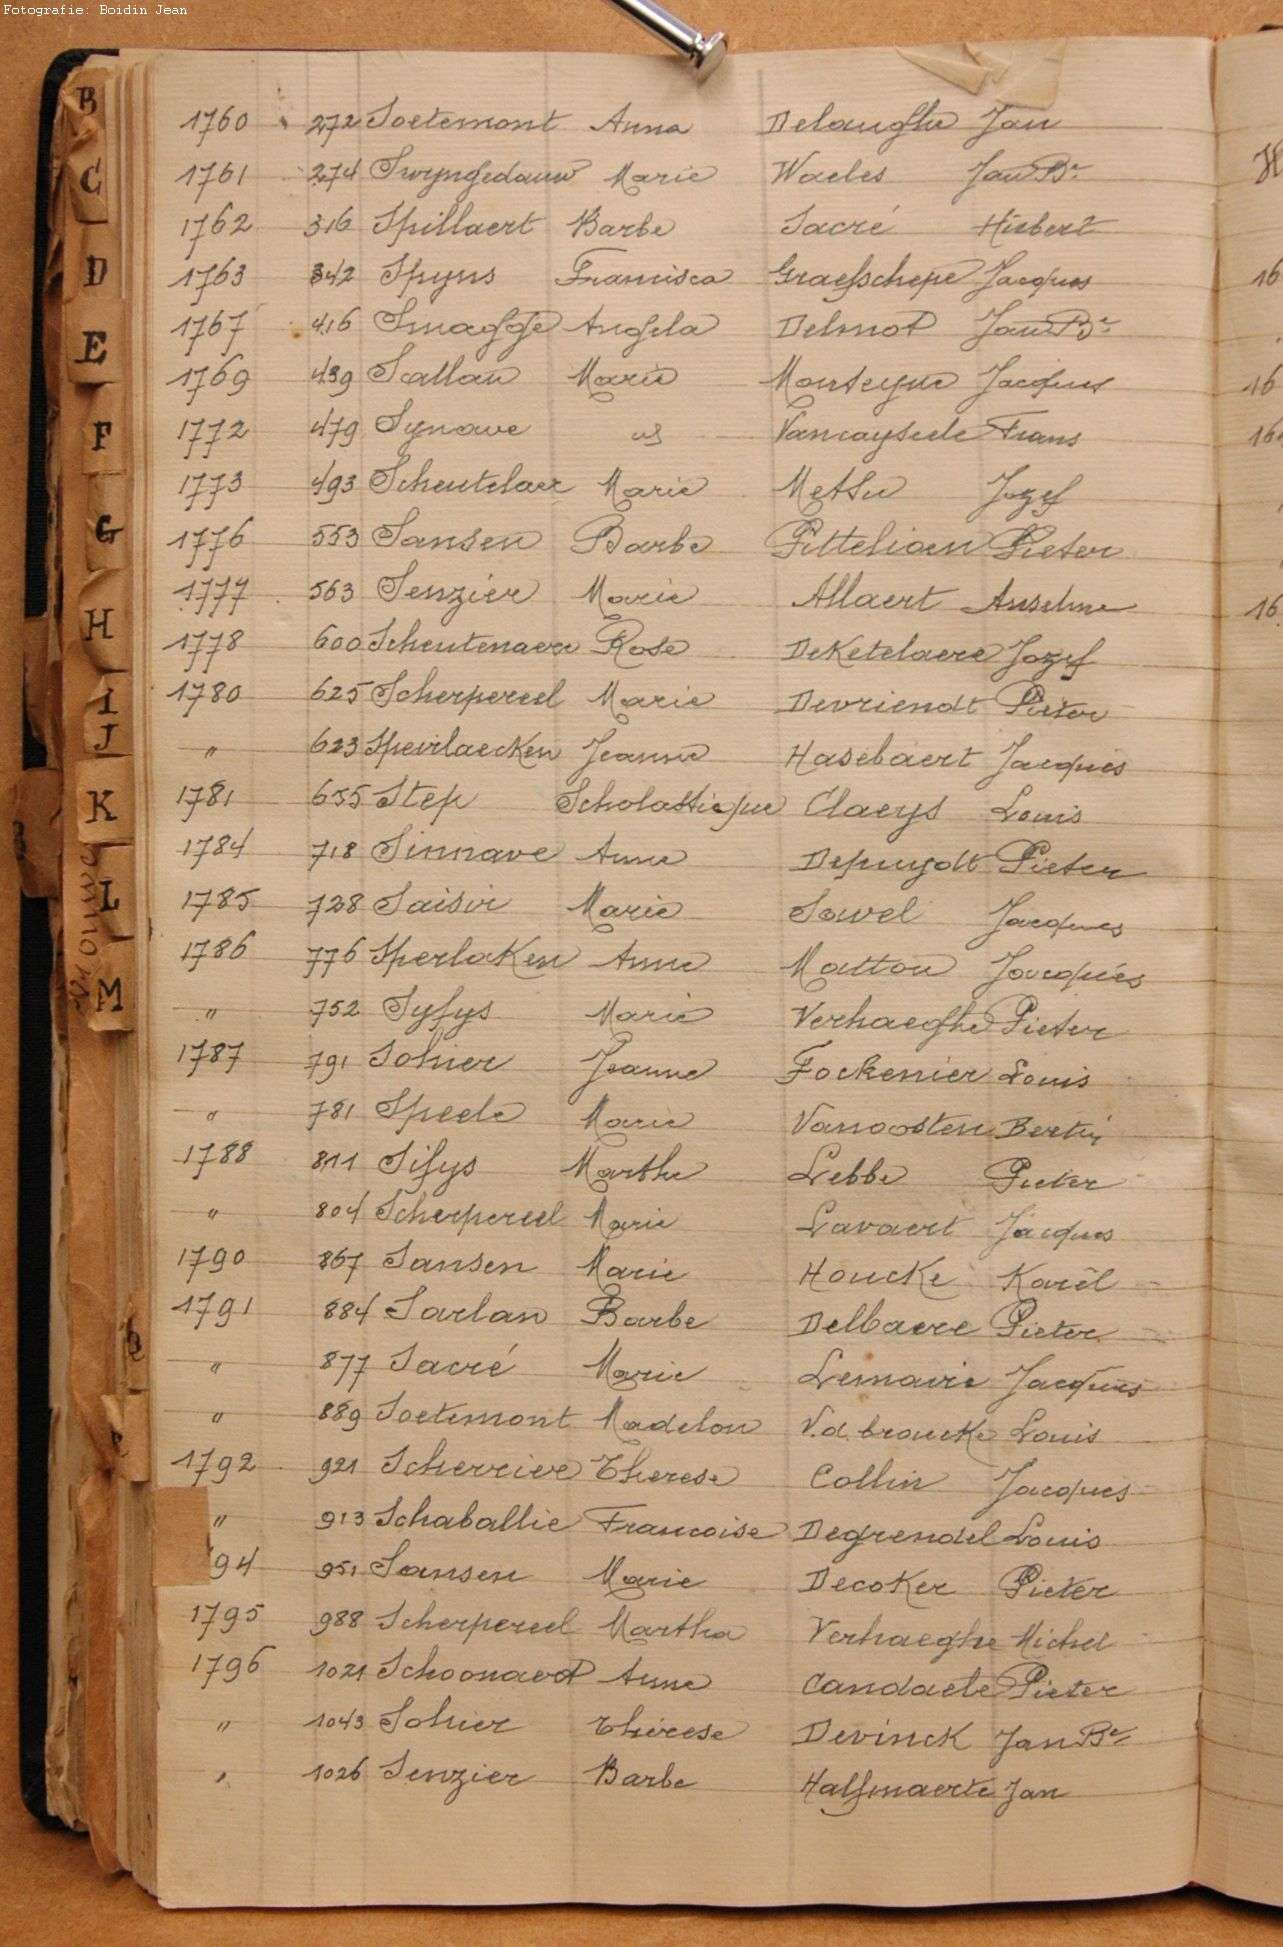 Fotografie: Boidin Jean
1760 272 Soetemont Anna Delanghe Jan
1761 274 Swyngedauw Marie Waeles Jan Bte
1762 316 Spillaert Barbe Sacré Hubert
1763 342 Spyns Francisca Graefschepe Jacques
1767 416 Smagghe Angela Delmot Jan Bte
1769 439 Callau Marie Monteyne Jacques
1772 479 Synave Vancayseele Frans
1773 493 Scheutelaer Marie Metsu Jozef
1776 553 Sansen Barbe Pittelioen Pieter
1777 563 Senzier Marie Allaert Anselme
1778 600 Scheutenaere Rose DeKetelaere Jozef
1780 625 Scherpereel Marie Devriendt Pieter
" 623 Speirlaecken Jeanne Hasebaert Jacques
1781 655 Step Scholastique Claeys Louis
1784 718 Sinnave Anne Depuydt Pieter
1785 728 Saisir Marie Sawel Jacques
1786 776 Sperlaken Anne Matton Jacques
" 752 Syfys Marie Verhaeghe Pieter
1787 791 Sohier Jeanne Fockenier Louis
" 781 Speele Marie Vanoosten Bertin
1788 811 Sifys Marthe Lebbe Pieter
" 804 Scherpereel Marie Lavaert Jacques
1790 867 Sansen Marie Houcke Karel
1791 884 Sarlan Barbe Delbaere Pieter
" 877 Sacré Marie Lemaire Jacques
" 889 Soetemont Madelon V.d. broucke Louis
1792 921 Scherrier Therese Collin Jacques
" 913 Schaballie Francoise Degrendel Louis
94 951 Sansen Marie Decoker Pieter
1795 988 Scherpereel Martha Verhaeghe Michel
1796 1021 Schoonaert Anne Candaele Pieter
" 1043 Sohier Thérese Devinck Jan Bte
" 1026 Senzier Barbe Halsmaerte Jan
B
C
D
E
F
G
H
I
J
K
L
M
16
16
16
16